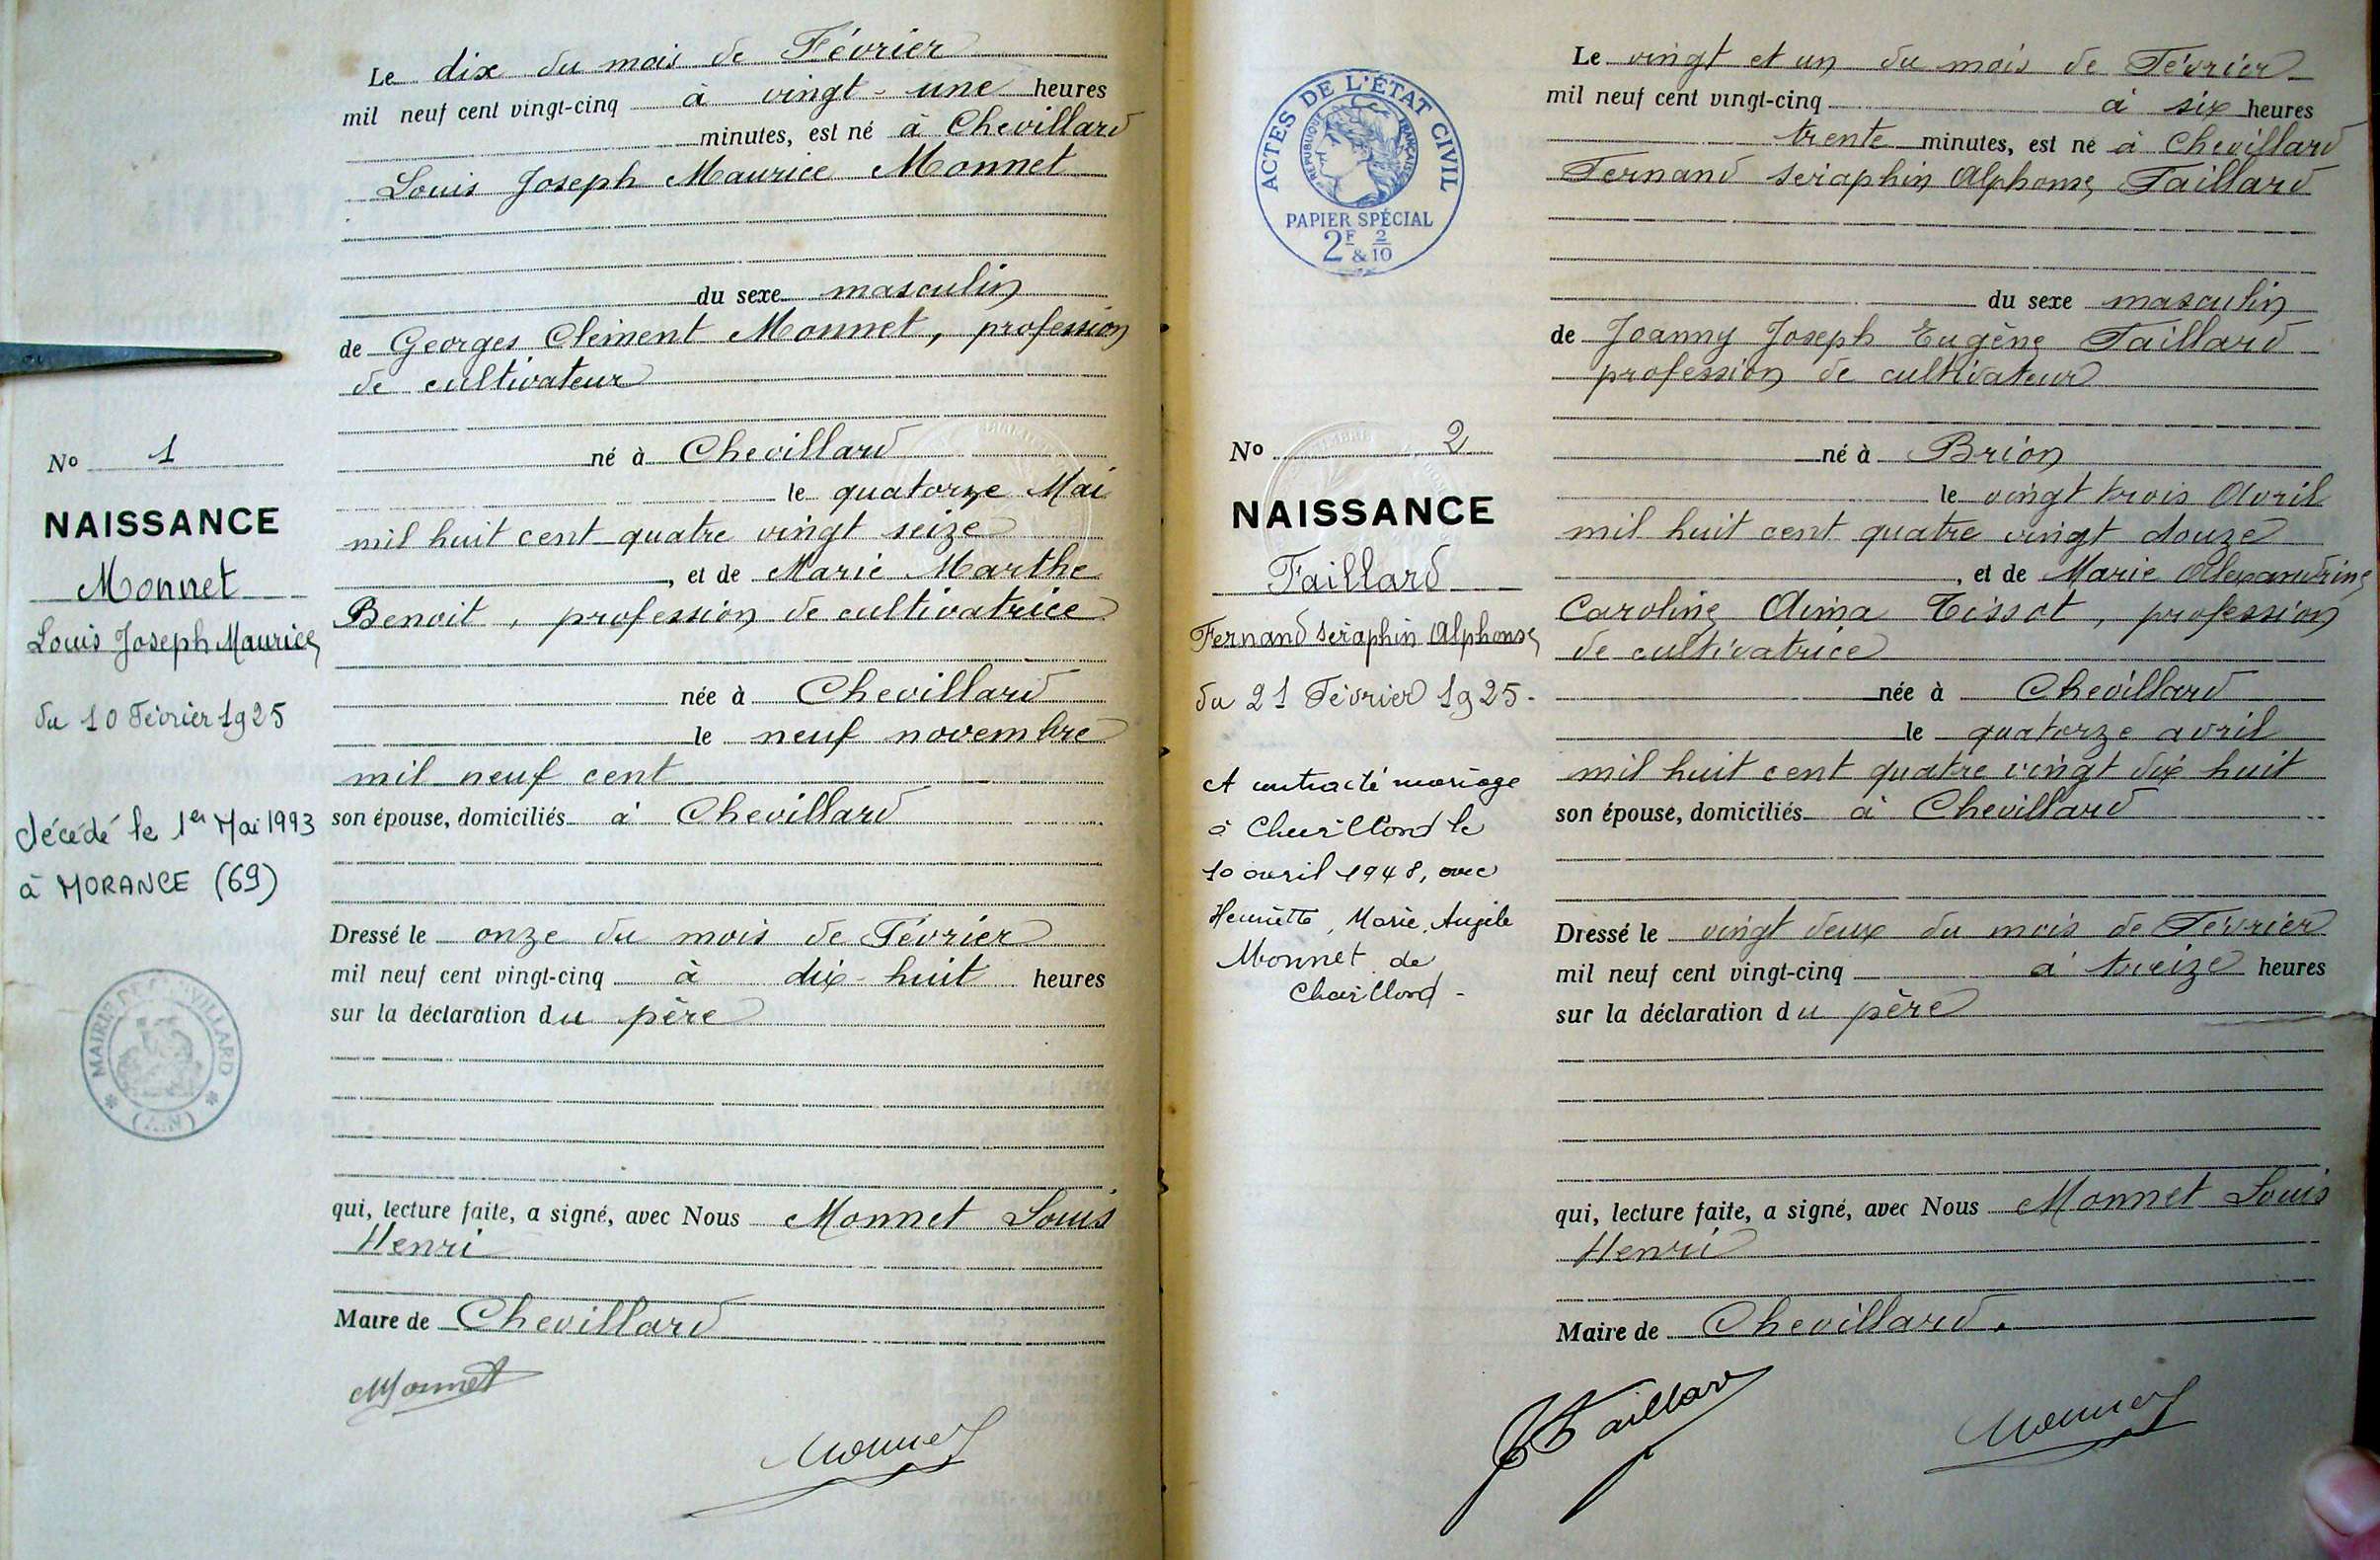 Le dix du mois de Février
mil neuf cent vingt-cinq à vingt-une heures
minutes, est né à Chevillard
Louis Joseph Maurice Monnet
du sexe masculin
de Georges Clément Monnet, profession
de cultivateur
né à Chevillard
le quatorze Mai
mil huit cent quatre vingt seize
, et de Marie Marthe
Benoit, profession de cultivatrice
née à Chevillard
le neuf novembre
mil neuf cent
son épouse, domiciliés à Chevillard
Dressé le onze du mois de Février
mil neuf cent vingt-cinq à dix-huit heures
sur la déclaration du père
qui, lecture faite, a signé, avec Nous Monnet Louis
Henri
Maire de Chevillard
Monnet
Monnet
No 1
NAISSANCE
Monnet
Louis Joseph Maurice
du 10 Février 1925
décédé le 1er Mai 1993
à MORANCE (69)
MAIRIE DE CHEVILLARD
(AIN)
ACTES DE L'ÉTAT CIVIL
RÉPUBLIQUE FRANÇAISE
PAPIER SPÉCIAL
2F & 2/10
No 2
NAISSANCE
Taillard
Fernand Séraphin Alphonse
du 21 Février 1925-
A contracté mariage
à Chevillard le
10 avril 1948, avec
Henriette, Marie, Angèle
Monnet de
Chevillard -
Le vingt et un du mois de Février
mil neuf cent vingt-cinq à six heures
trente minutes, est né à Chevillard
Fernand Séraphin Alphonse Taillard
du sexe masculin
de Joanny Joseph Eugène Taillard
profession de cultivateur
né à Brion
le vingt trois Avril
mil huit cent quatre vingt douze
, et de Marie Alexandrine
Caroline Aima Tissot, profession
de cultivatrice
née à Chevillard
le quatorze avril
mil huit cent quatre vingt dix huit
son épouse, domiciliés à Chevillard
Dressé le vingt deux du mois de Février
mil neuf cent vingt-cinq à treize heures
sur la déclaration du père
qui, lecture faite, a signé, avec Nous Monnet Louis
Henri
Maire de Chevillard.
J Taillard
Monnet